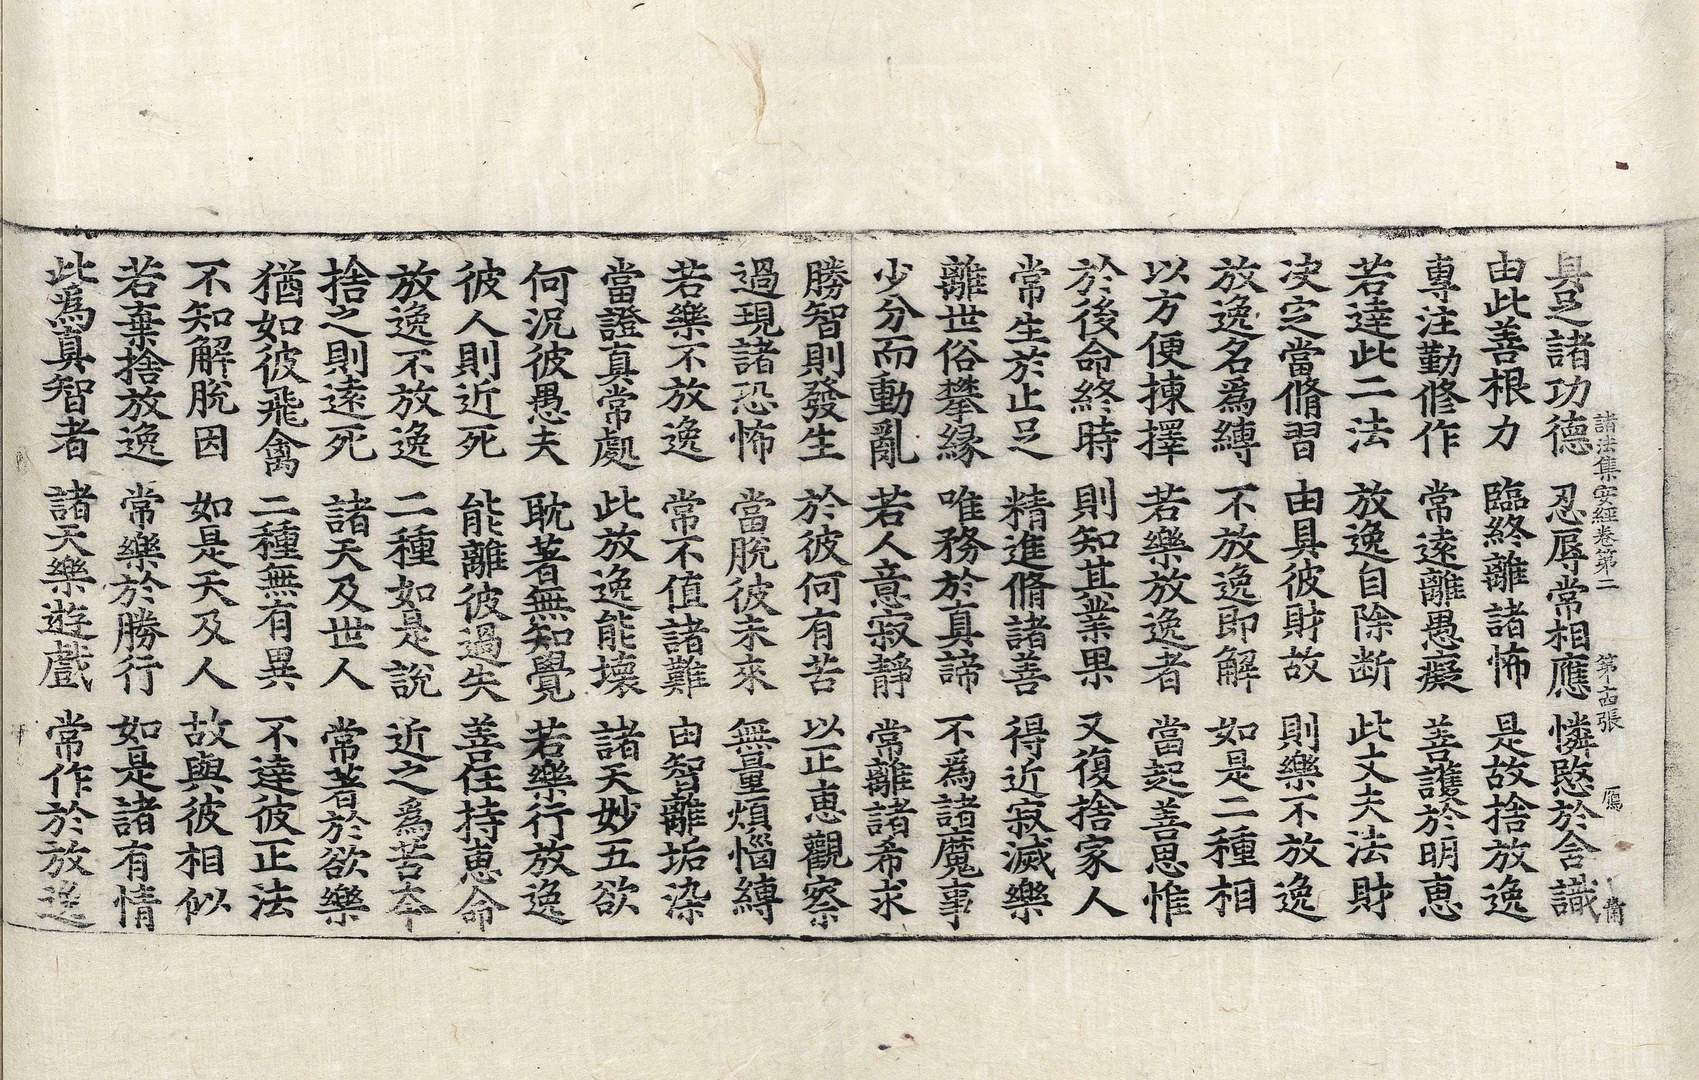 諸法集要經卷第二　第古張　鴈　備
具足諸功德　忍辱常相應　憐愍於含識
由此善根力　臨終離諸怖　是故捨放逸
專注勤修作　常遠離愚癡　善護於明恵
若達此二法　放逸自除断　此丈夫法財
决定當脩習　由具彼財故　則樂不放逸
放逸名爲縛　不放逸即解　如是二種相
以方便揀擇　若樂放逸者　當起善思惟
於後命終時　則知其業果　又復捨家人
常生於止足　精進脩諸善　得近寂滅樂
離世俗攀縁　唯務於真諦　不爲諸魔事
少分而動亂　若人意寂靜　常離諸希求
勝智則發生　於彼何有苦　以正恵觀察
過現諸恐怖　當脫彼未來　無量煩惱縛
若樂不放逸　常不值諸難　由智離垢染
當證真常處　此放逸能壞　諸天妙五欲
何況彼愚夫　耽著無知覺　若樂行放逸
彼人則近死　能離彼過失　善住持恵命
放逸不放逸　二種如是說　近之爲苦夲
捨之則逺死　諸天及世人　常著於欲樂
猶如彼飛禽　二種無有異　不達彼正法
不知解脫因　如是天及人　故與彼相似
若棄捨放逸　常樂於勝行　如是諸有情
此爲真智者　諸天樂遊戲　常作於放逸